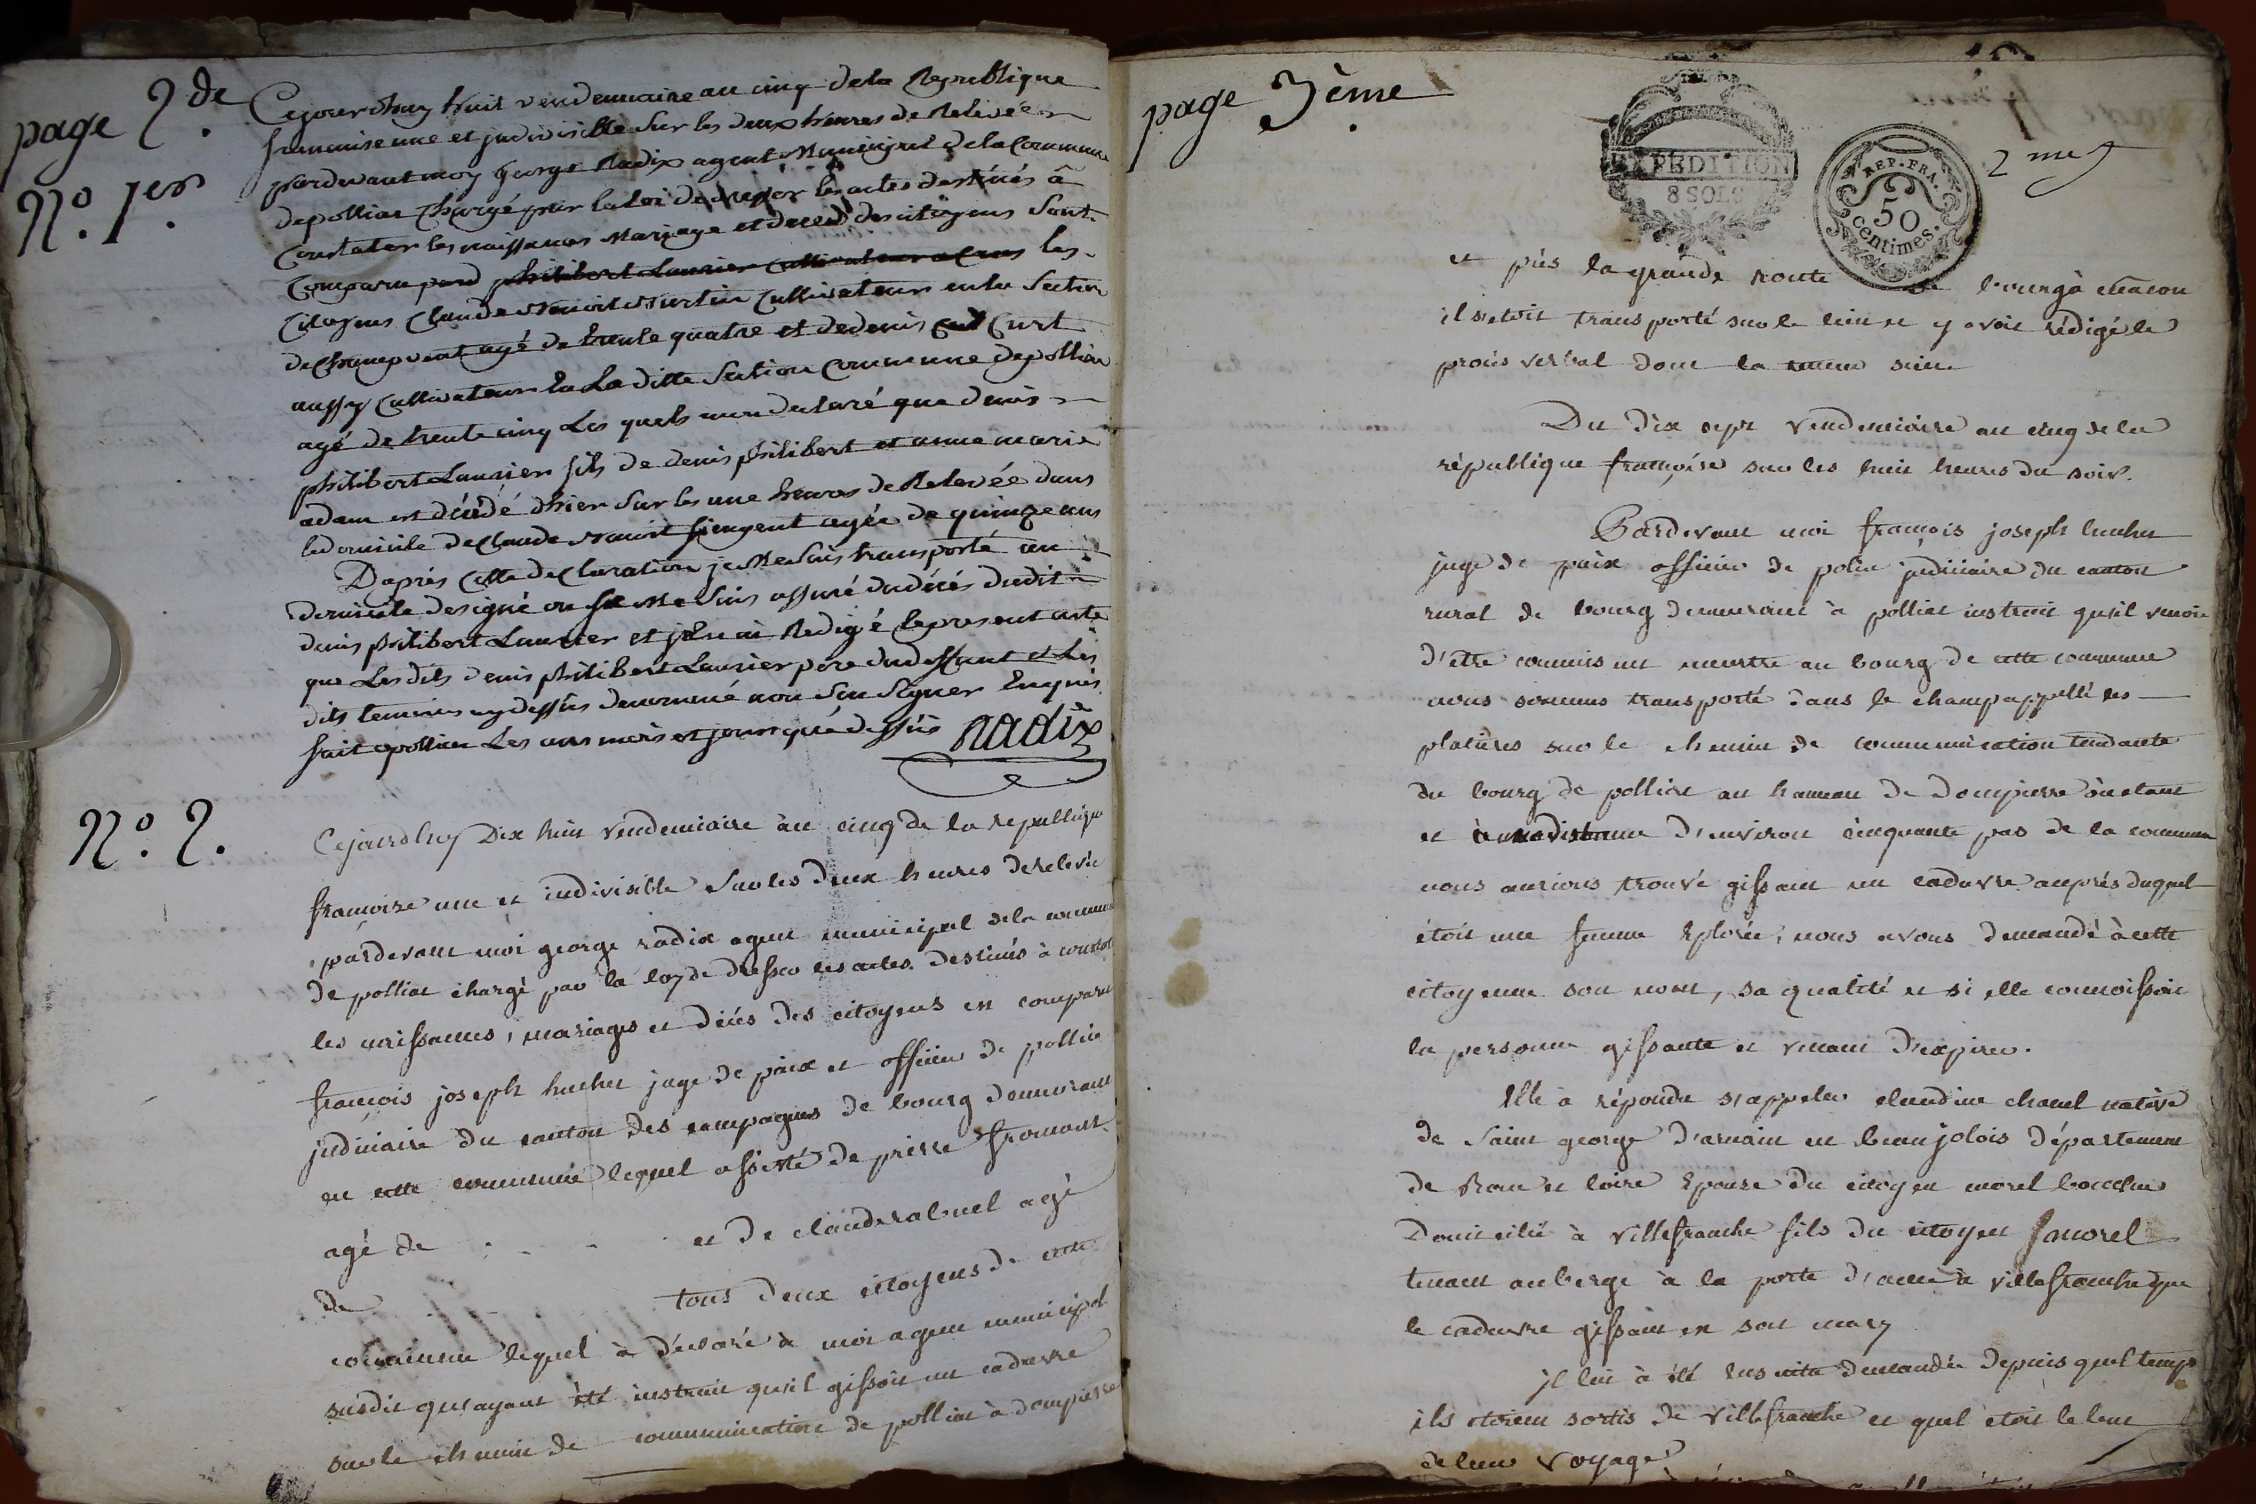 page 2.de
Cejourdhuy huit vendemiaire an cinq dela Republique
francoise une et jndivisible sur les deux heures de Relevée
pardevant moy George Radix agent Municipal dela Commune
depolliat Chargé par la loi de dresser les actes destinés a
N.o 1.er
Constater les naissances Mariage et deces des citoyens Sont
Comparu pard philibert Laurier Cultivateur a Crus les
Citoyens Claude Benoit Curtin Cultivateur en la Section
de Champvent agé de trente quatre et dedenis Curt
aussy Cultivateur En La ditte Section Commune depolliat
agé de trente cinq Les quels mon declaré que denis
philibert Laurier fils de denis philibert et anne marie
adam est décédé dhier Sur les une heures de Relevée dans
ledomicile de Claude Benoit agée de quinze ans
Daprès Cette deClaration je Me Suis transporté au
domicile designé ou je Me Suis assuré dudécés dudit
denis philibert Laurier et jen ai Redigé lepresent acte
que Lesdits denis philibert Laurier père dudeffunt et Les
dits temoins cydessus denommé non Seu Signer Enquis
fait apolliat Les ans mois et jour que dessus Radix
N.o 2.
Cejourdhuy Dix huit vendemiaire an cinq de la republique
francoise une et indivisible sur les deux heures de relevée
pardevant moi george radix agent municipal dela commune
de polliat chargé par la loy de dresser les actes destinés à constater
les naissances, mariages et décès des citoyens est comparu
françois joseph huchet juge de paix et officier de pollice
judiciaire du canton des campagnes de bourg demeurant
en cette commune lequel assisté de pierre fromont
agé de et de claude rabuel agé
de tous deux citoyens de cette
commune lequel à déclaré à moi agent municipal
susdit qu'ayant été instruit qu'il gissoit un cadavre
sur le chemin de communication de polliat à dompierre
page 3ème
EXPEDITION
8 SOLS
REP. FRA.
50
centimes.
et près la grande route de bourg à mâcon
il s'etoit transporté sur le lieu et y avoit rédigé le
procès verbal dont la teneur suit
Du dix sept vendemiaire an cinq de la
république françoise sur les huit heures du soir.
Pardevant moi françois joseph huchet
juge de paix officier de police judiciaire du canton
rural de bourg demeurant à polliat instruit qu'il venoit
d'être commis un meurtre au bourg de cette commune
nous sommes transporté dans le champ appellé les
platières sur le chemin de communication tendante
du bourg de polliat au hameau de dompierre où etant
et à une distance d'environ cinquante pas de la commune
nous aurions trouvé gissant un cadavre auprès duquel
étoit une femme Eplorée; nous avons demandé à cette
citoyenne son nom, sa qualité et si elle connoissoit
la personne gissante et venant d'expirer.
Elle à répondu s'appeler claudine chanel native
de Saint george d'arnain en beaujolois département
de Rone et loire Epouse du citoyen morel boucher
Domicilié à villefranche fils du citoyen morel
tenant auberge à la porte d'anse à villefranche que
le cadavre gissant est son mary
jl lui à été ensuite demandée depuis quel temps
ils etoient sortis de villefranche et quel étoit le but
de leur voyage